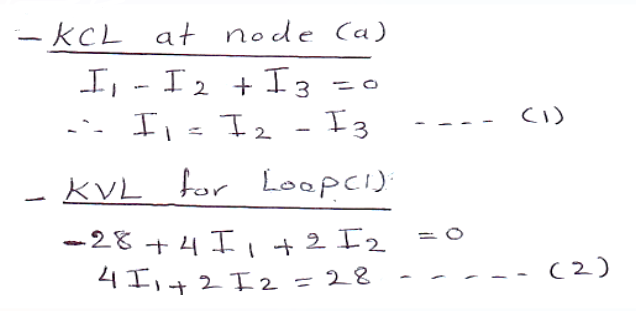 - KCL at node (a)
I₁ - I₂ + I₃ = 0
∴ I₁ = I₂ - I₃ ---- (1)
- KVL for Loop(1):
-28 + 4 I₁ + 2 I₂ = 0
4 I₁ + 2 I₂ = 28 ----- (2)